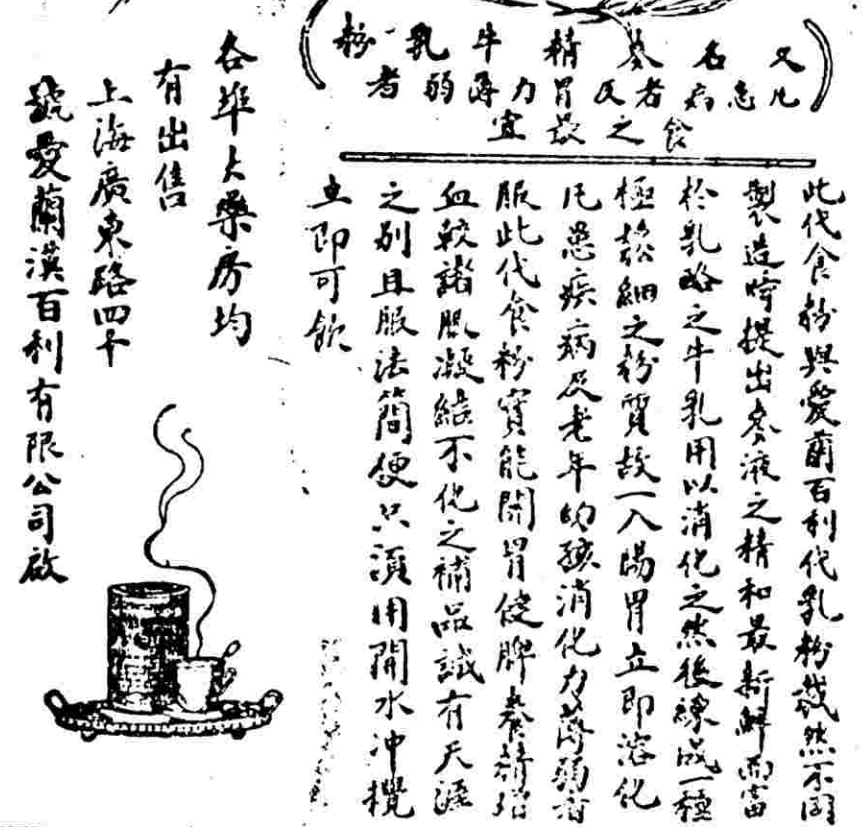 又名麥精牛乳粉
凡患病者及胃力薄弱者
食之最宜
此代食粉與愛蘭百利代乳粉截然不同
製造時提出麥液之精和最新鮮而富
於乳酪之牛乳用以消化之然後練成一種
極鬆細之粉質故一入腸胃立即溶化
凡患疾病及老年幼孩消化力薄弱者
服此代食粉實能開胃使脾養精增
血較諸凝結不化之補品誠有天涯
之別且服法簡便只須用開水沖攪
立即可飲
各埠大藥房均
有出售
上海廣東路四十
號愛蘭漢百利有限公司啟